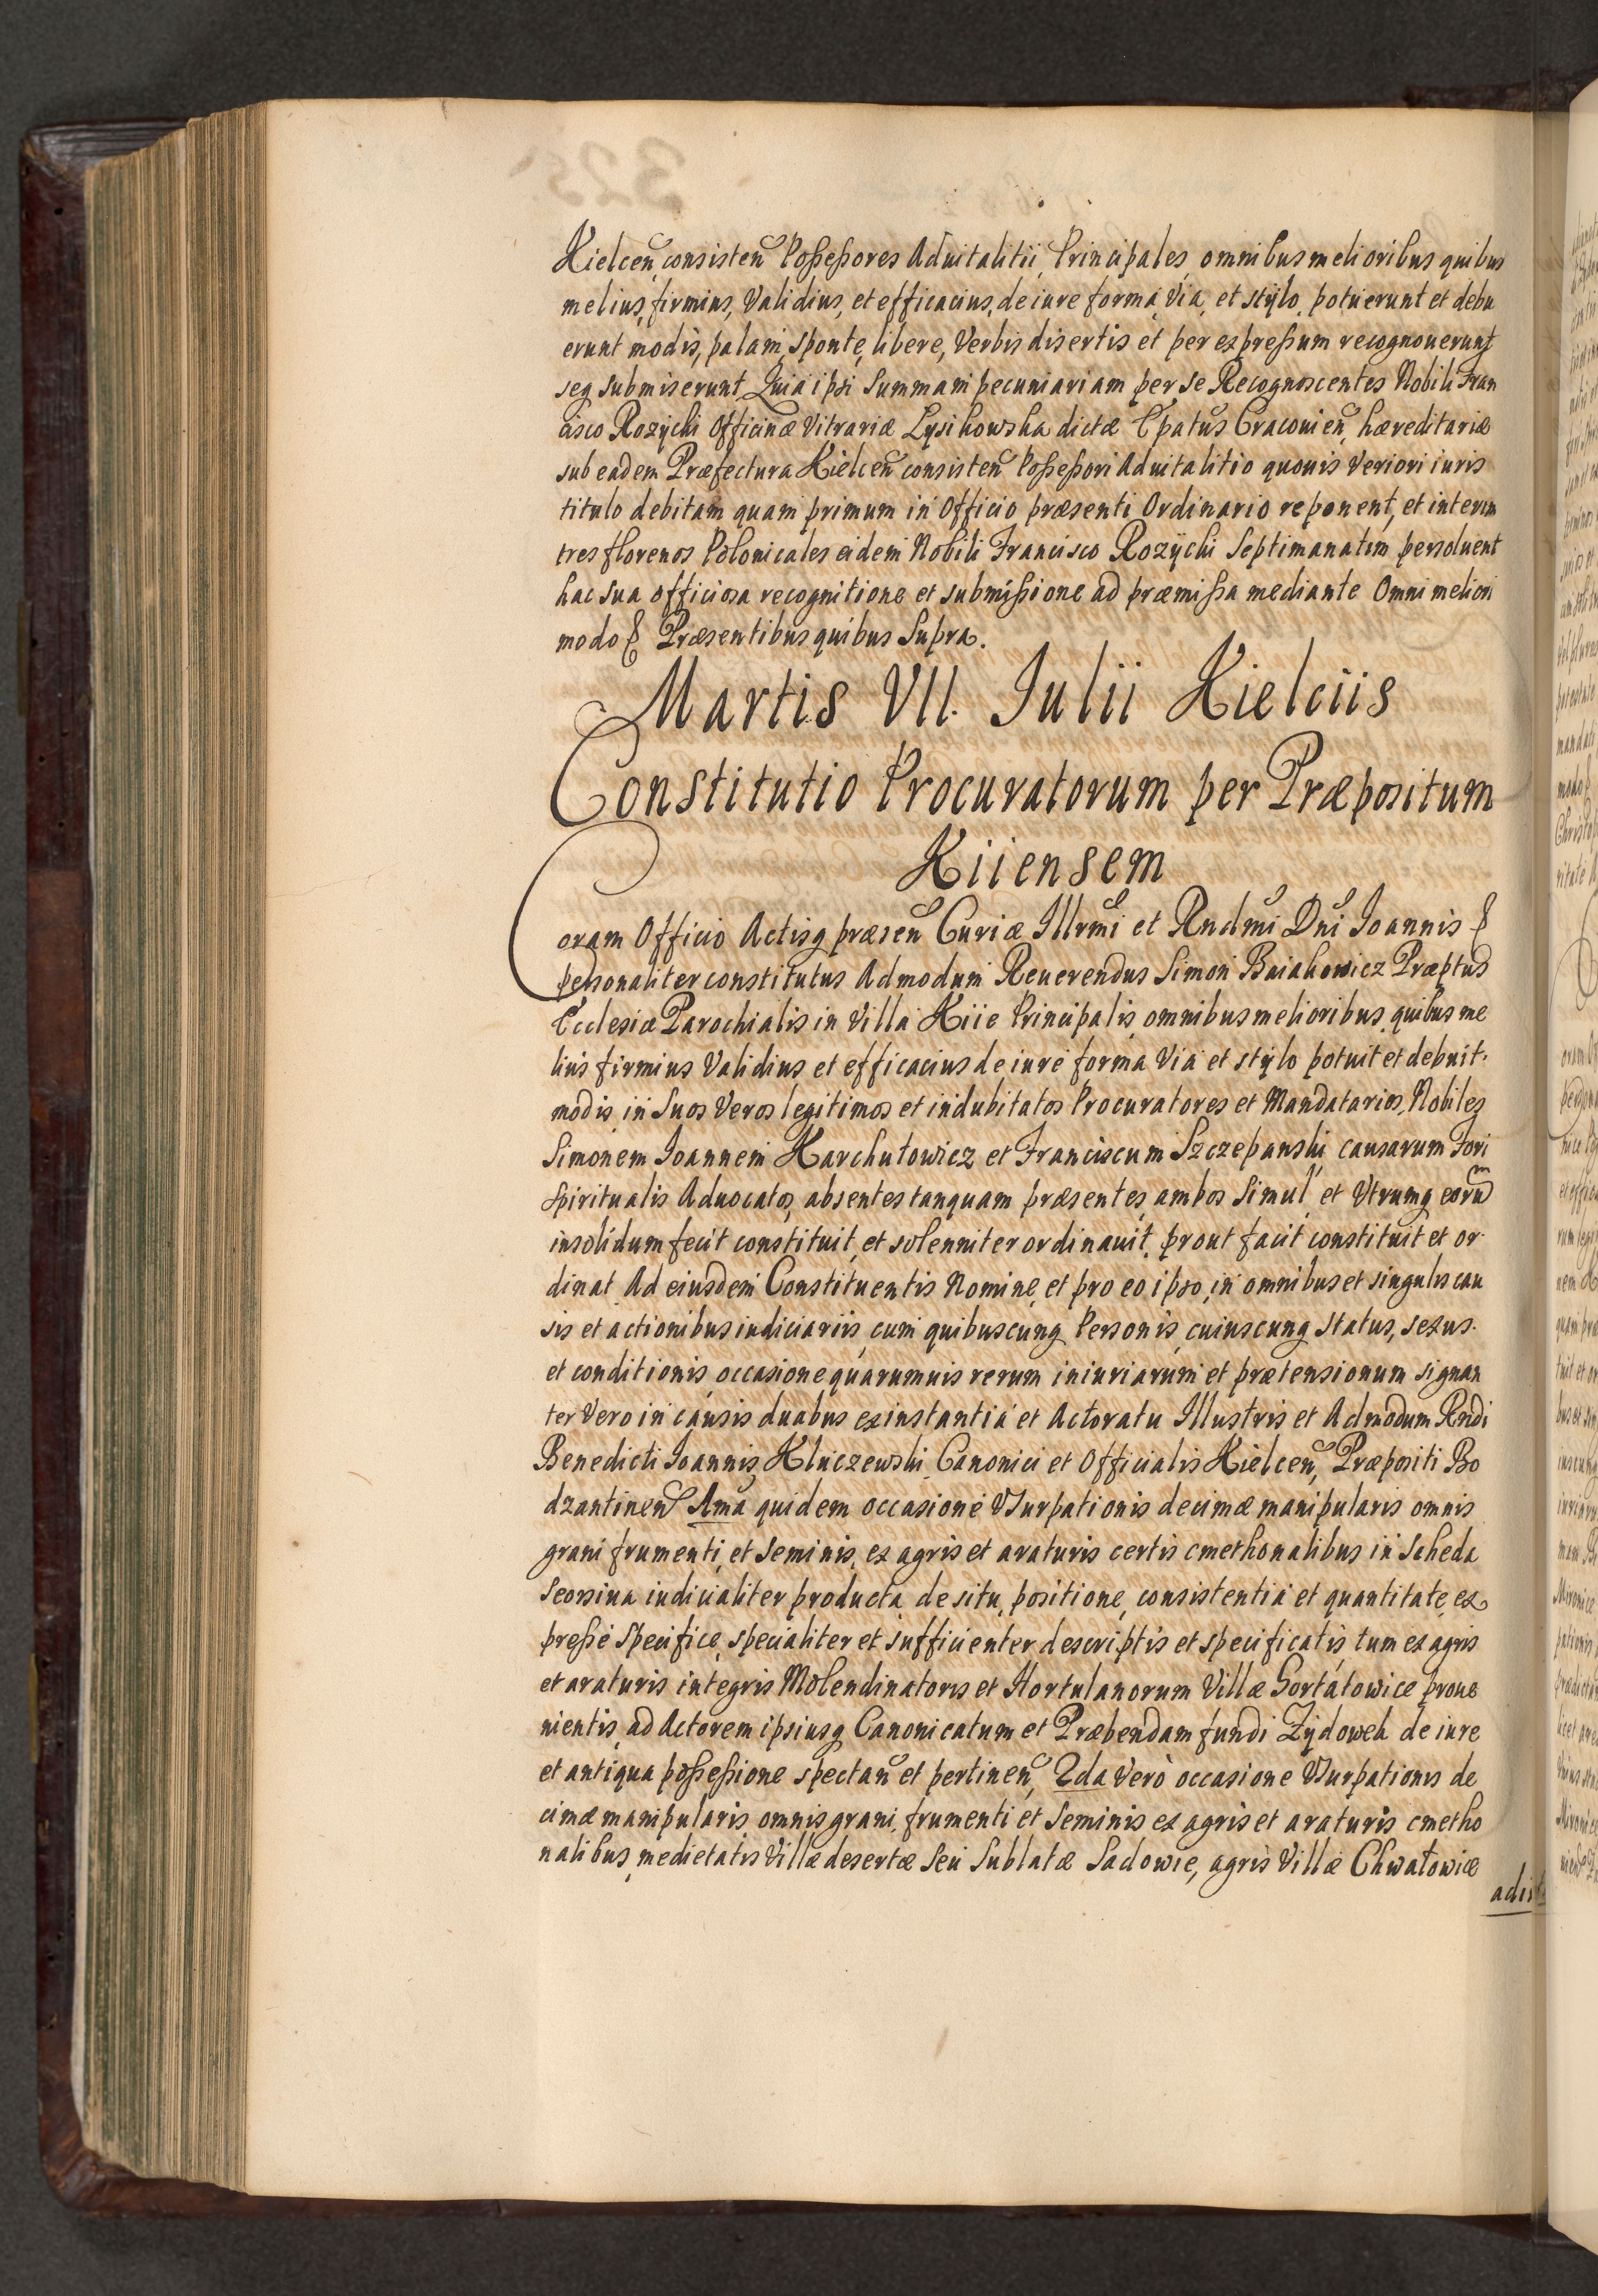 Kielceñ consisteñ Poßeßores Aduitalitii, Principales, omnibus melioribus quibus
melius, firmius, Validius, et efficacius, de iure forma, Via, et stÿlo, potuerunt et debu
erunt modis, palam, sponte, libere, Verbis disertis et per expreßum recognouerunt
seq submiserunt, Quia ipsi Summam pecuniariam per se Recognoscentes Nobili Fran
cisco Rozÿcki Officinæ Vitrariæ Lysikowska dictæ Epatus Cracouieñ, hæreditariæ
sub eadem Præfectura Kielceñ consisteñ Poßeßori Aduitalitio quouis Veriori iuris
titulo debitam quam primum in Officio præsenti Ordinario reponent, et interim
tres florenos Polonicales eidem Nobili Francisco Rozÿcki Septimanatim persoluent
hac sua officiosa recognitione et submißione ad præmißa mediante Omni meliori
modo & Præsentibus quibus Supra.
Martis VII. Iulii Kielciis
Constitutio Procuratorum per Præpositum
Kiiensem
Coram Officio Actisq præseñ Curiæ Illrmi et Rndmi Dni Ioannis &
personaliter constitutus Admodum Reuerendus Simon Baiakowicz Præptus
Ecclesiæ Parochialis in Villa Kiie Principalis, omnibus melioribus, quibus me
lius firmius Validius, et efficacius de iure forma Via et stÿlo potuit et debuit
modis, in Suos Veros legitimos et indubitatos Procuratores et Mandatarios, Nobiles
Simonem Ioannem Karchutowicz et Franciscum Szczepanski causarum Fori
Spiritualis Aduocatos, absentes tanquam præsentes, ambos Simul, et Vtrumq eorũ
insolidum fecit constituit, et solenniter ordinauit, prout facit constituit et or
dinat Ad eiusdem Constituentis Nomine, et pro eo ipso, in omnibus et singulis cau
sis et actionibus iudiciariis, cum quibuscunq Personis, cuiuscunq status, sexus
et conditionis, occasione quarumuis rerum iniuriarum et prætensionum signan
ter Vero in causis duabus ex instantia et Actoratu Illustris et Admodum Rndi
Benedicti Ioannis Kluczewski Canonici et Officialis Kielceñ, Præpositi Bo
dzantineñ Ama quidem occasione Vsurpationis decimæ manipularis omnis
grani frumenti, et Seminis, ex agris et araturis certis cmethonalibus in Scheda
Seorsiua iudicialiter producta, de situ, positione, consistentia et quantitate, ex
preßé specifice, specialiter et sufficienter descriptis et specificatis, tum ex agris
et araturis integris Molendinatoris et Hortulanorum Villæ Gortatowice proue
nientis, ad Actorem ipsiusq Canonicatum et Præbendam fundi Zÿdowek de iure
et antiqua poßeßione spectañ et pertineñ, 2da Verò occasione Vsurpationis de
cimæ manipularis omnis grani, frumenti et Seminis ex agris et araturis cmetho
nalibus, medietatis Villæ desertæ Seu Sublatæ Sadowie, agris Villæ Chwałowice